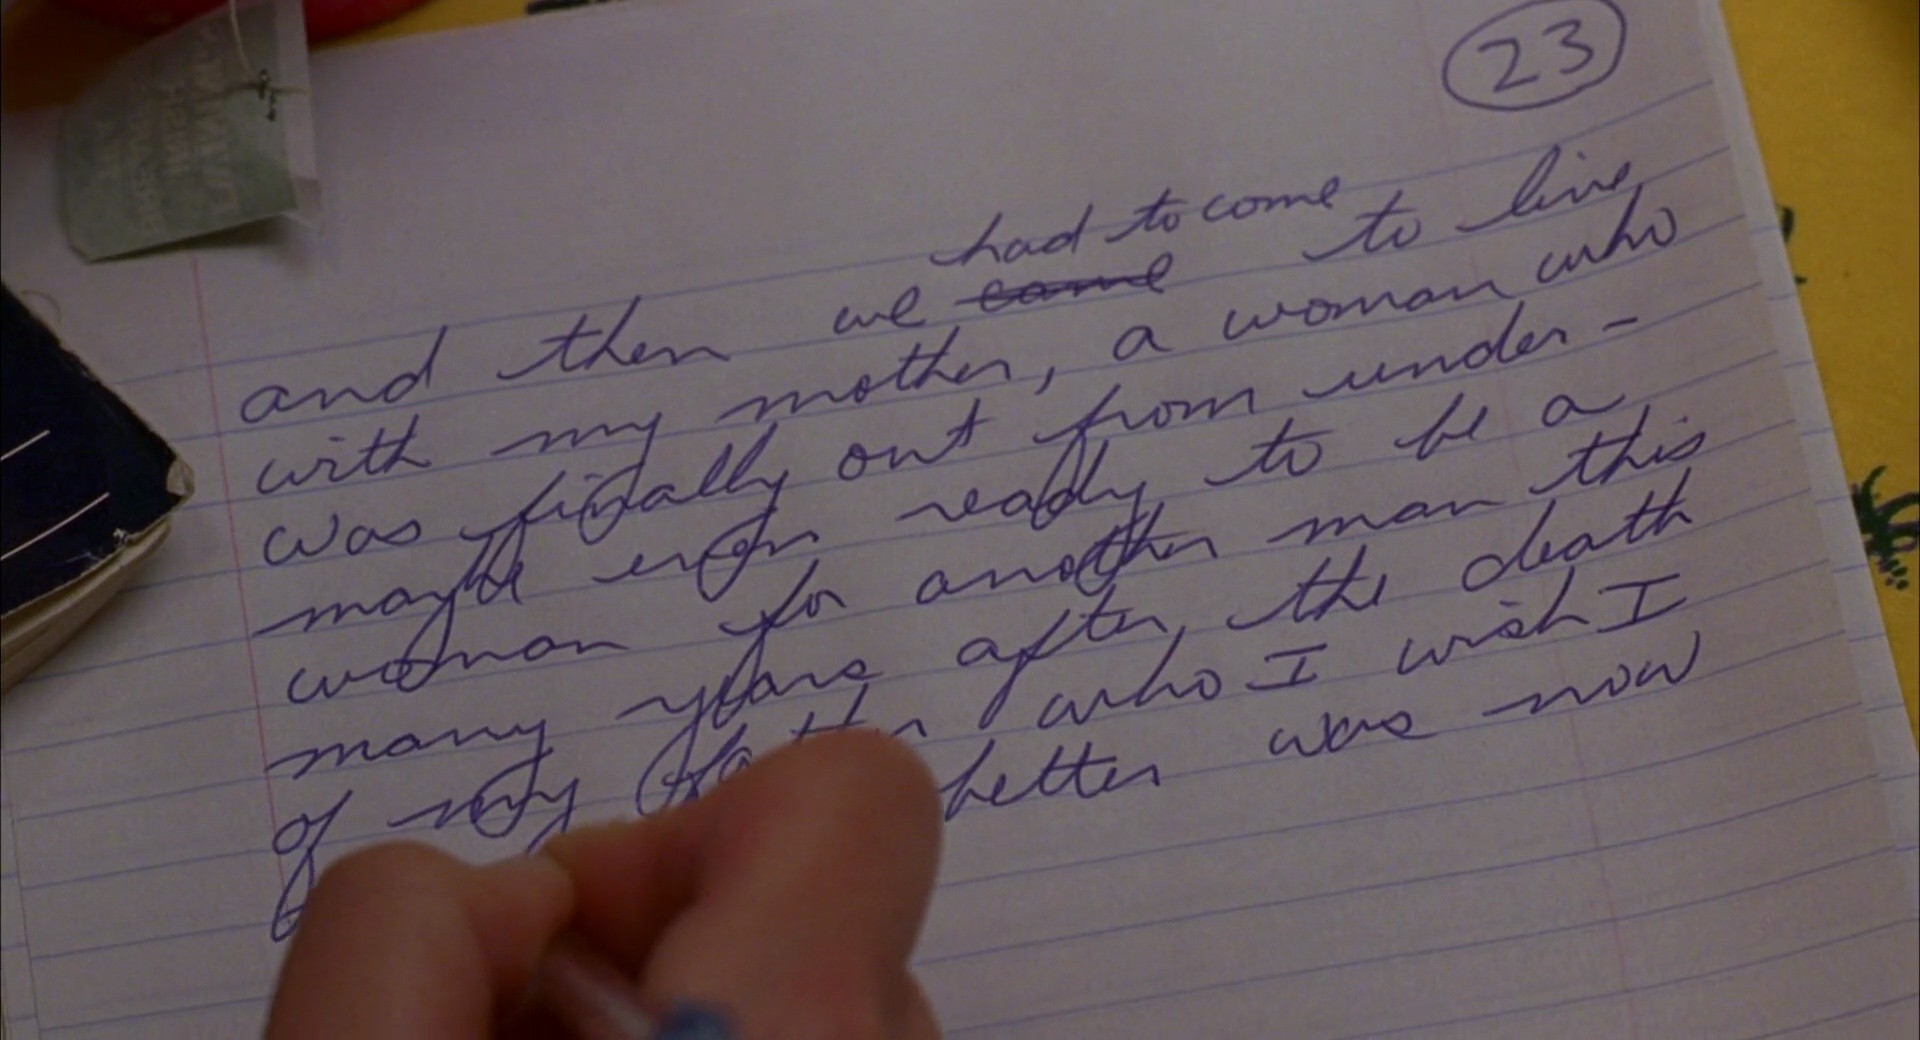 23
had to come
and then we came to live
with my mother, a woman who
was finally out from under-
maybe even ready to be a
woman for another man this
many years after the death
of my father who I wish I
better was now